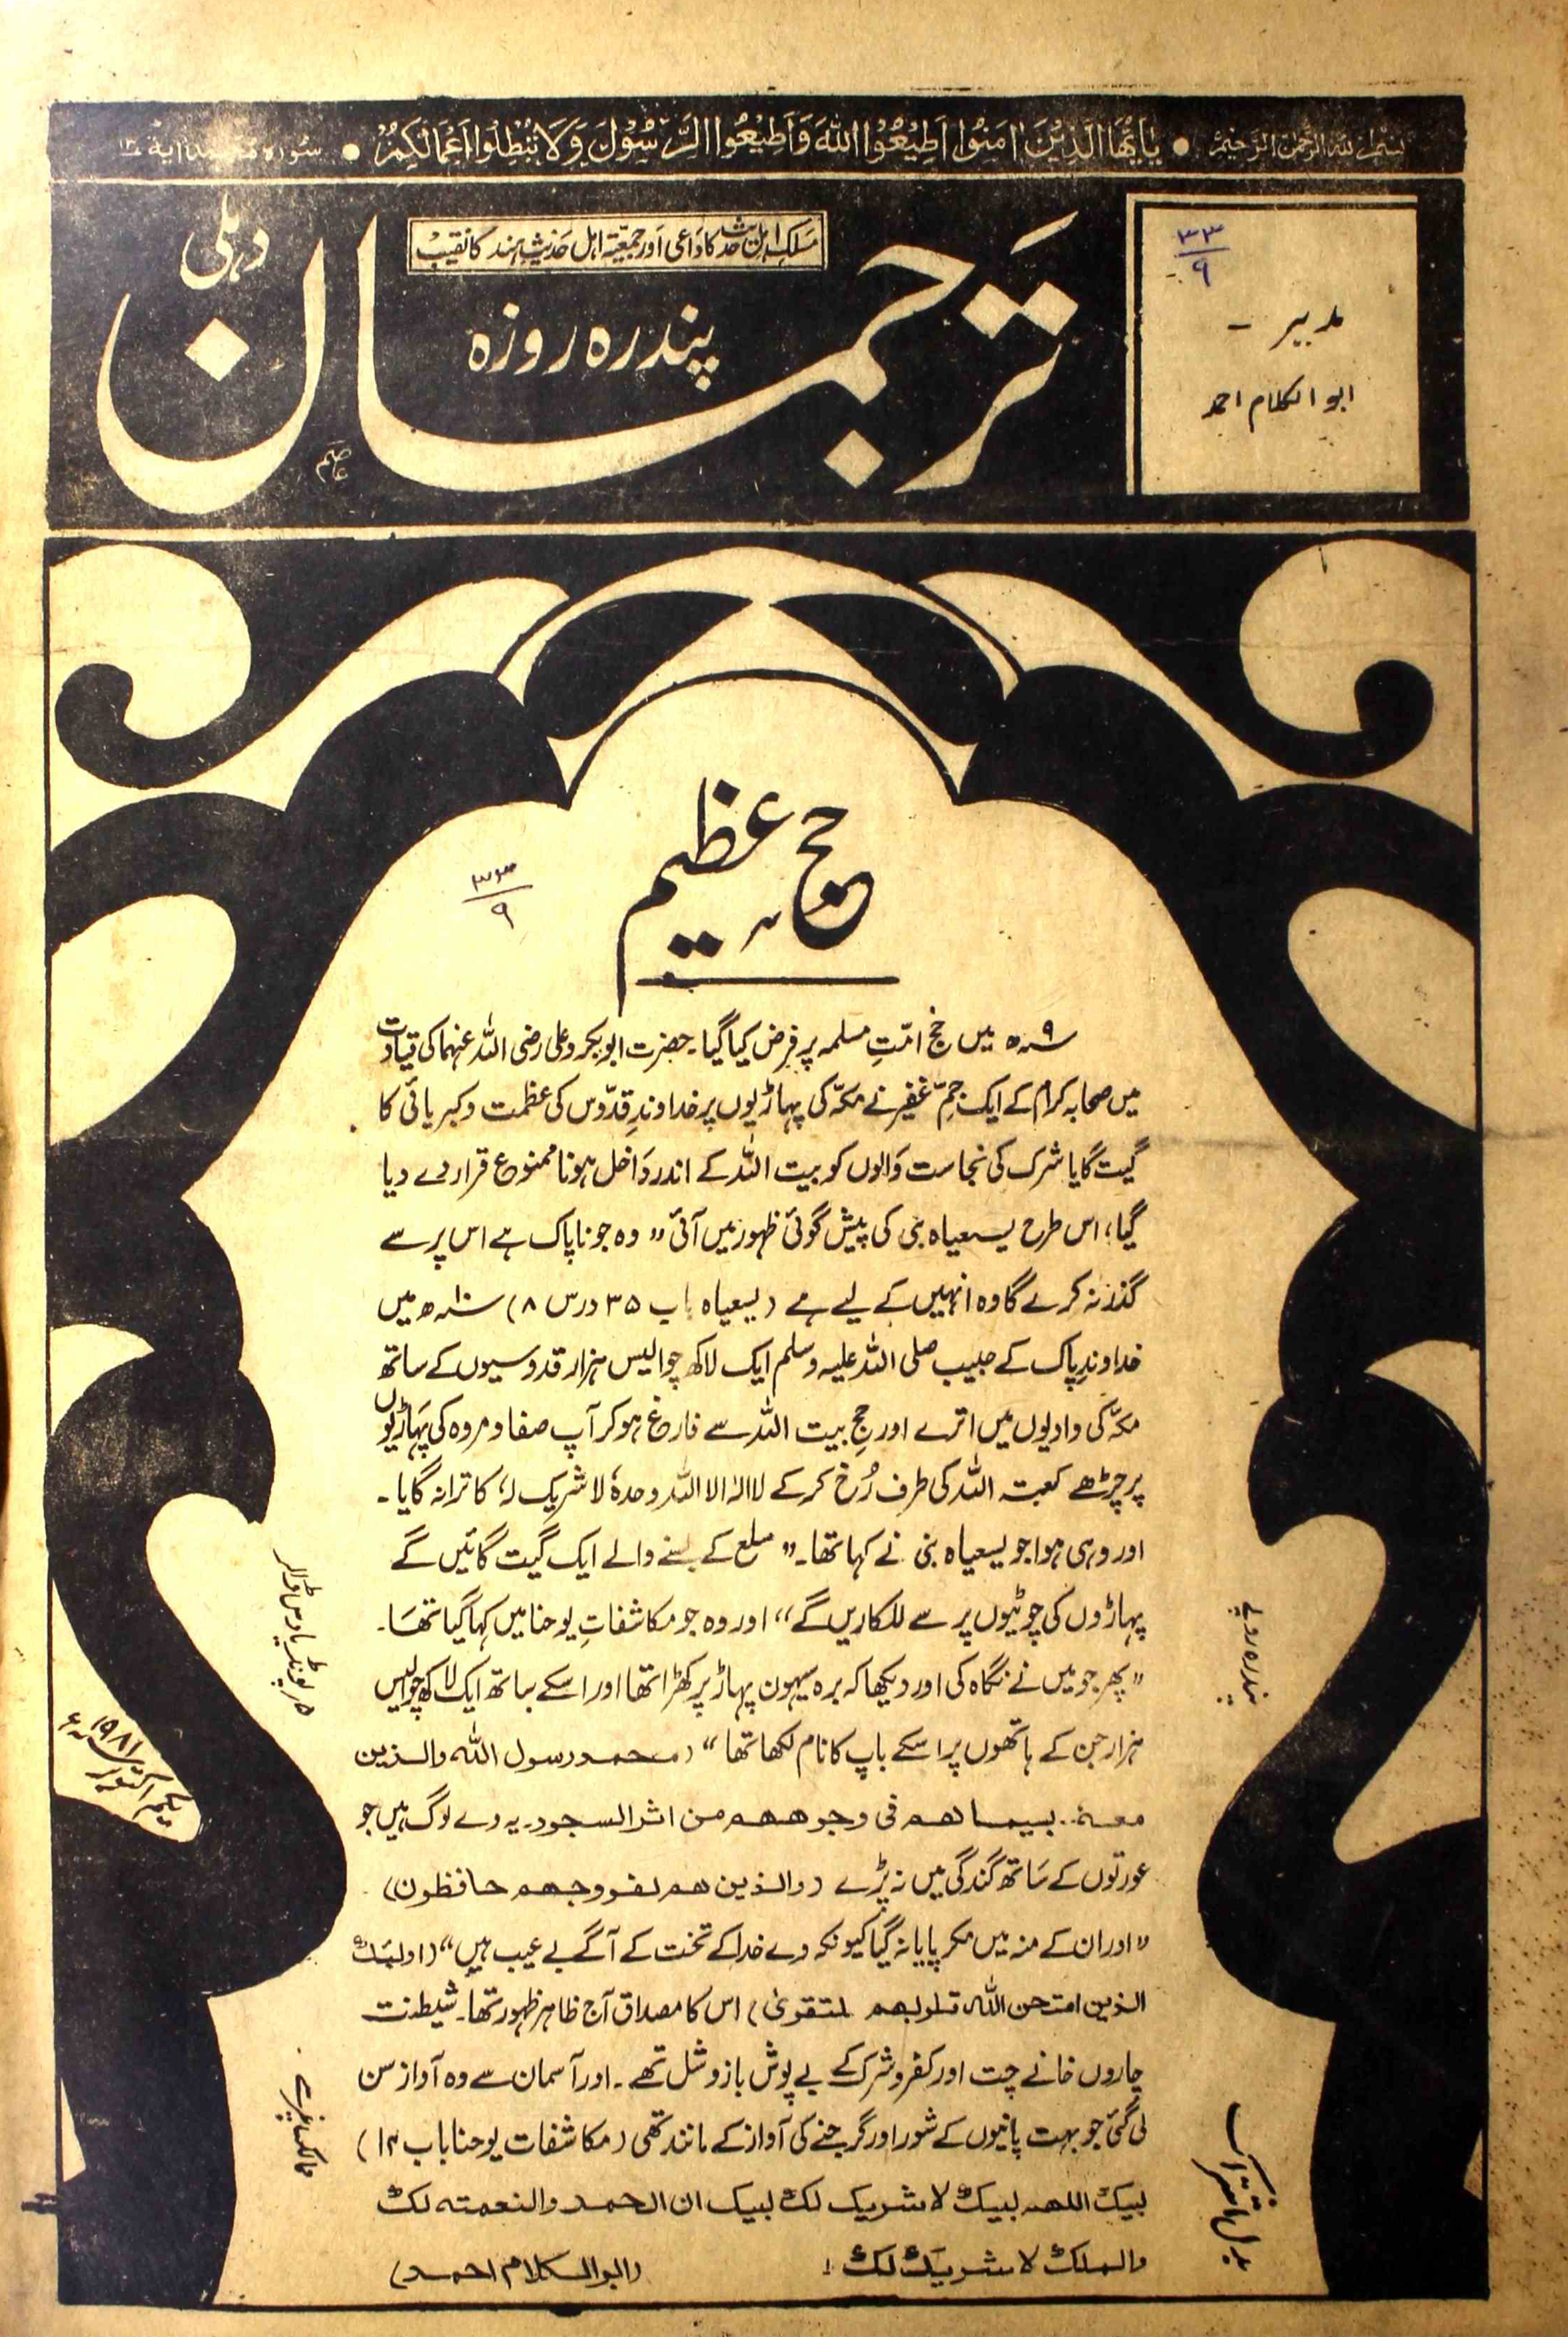 بسم اللہ الرحمن الرحیم ● یٰاَیُّهَا الَّذِیْنَ اٰمَنُوْا اَطِیْعُوا اللهَ وَاَطِیْعُوا الرَّسُوْلَ وَلَا تُبْطِلُوْا اَعْمَالَکُمْ ● سُورہ محمد آیة ۳۳
۳۳
۹
مدیر -
ابوالکلام احمد
مسلک اہل حدیث کا داعی اور جمعیۃ اہل حدیث ہند کا نقیب
ترجمان
پندرہ روزہ
دہلی
عاصم
حجِ عظیم
۳۳
۹
۹ھ میں حج امّتِ مسلمہ پر فرض کیا گیا۔ حضرت ابوبکر و علی رضی اللہ عنہما کی قیادت
میں صحابہ کرام کے ایک جمِّ غفیر نے مکّہ کی پہاڑیوں پر خداوندِ قدّوس کی عظمت و کبریائی کا
گیت گایا شرک کی نجاست والوں کو بیت اللہ کے اندر داخل ہونا ممنوع قرار دے دیا
گیا، اس طرح یسعیاہ نبی کی پیش گوئی ظہور میں آئی ” وہ جو ناپاک ہے اس پر سے
گذر نہ کرے گا وہ انہیں کے لیے ہے (یسعیاہ باب ۳۵ درس ۸) ۱۰ھ میں
خداوندِ پاک کے حبیب صلی اللہ علیہ وسلم ایک لاکھ چوالیس ہزار قدوسیوں کے ساتھ
مکّہ کی وادیوں میں اترے اور حجِ بیت اللہ سے فارغ ہو کر آپ صفا و مروہ کی پہاڑیوں
پر چڑھے کعبۃ اللہ کی طرف رُخ کر کے لا الہ الا اللہ وحدہٗ لا شریک لہٗ کا ترانہ گایا۔
اور وہی ہوا جو یسعیاہ نبی نے کہا تھا۔ ” سلع کے بسنے والے ایک گیت گائیں گے
پہاڑوں کی چوٹیوں پر سے للکاریں گے“ اور وہ جو مکاشفاتِ یوحنا میں کہا گیا تھا۔
”پھر جو میں نے نگاہ کی اور دیکھا کہ برہ سیہون پہاڑ پر کھڑا تھا اور اسکے ساتھ ایک لاکھ چوالیس
ہزار جن کے ہاتھوں پر اسکے باپ کا نام لکھا تھا“ (محمد رسول اللہ والذین
معہٗ.. سیماھم فی وجوھھم من اثر السجود۔ یہ وے لوگ ہیں جو
عورتوں کے ساتھ گندگی میں نہ پڑے (والذین ھم لفروجھم حافظون)
”اور ان کے منہ میں مکر پایا نہ گیا کیونکہ وے خدا کے تخت کے آگے بے عیب ہیں“ (اولئک
الذین امتحن اللہ قلوبھم للتقویٰ) اس کا مصداق آج ظاہر ظہور تھا۔ شیطنت
چاروں خانے چت اور کفر و شرک کے بے پوش بازو شل تھے۔ اور آسمان سے وہ آواز سن
لی گئی جو بہت پانیوں کے شور اور گرجنے کی آواز کے مانند تھی (مکاشفات یوحنا باب ۱۴)
لبیک اللھم لبیک لا شریک لک لبیک ان الحمد والنعمتہ لک
والملک لا شریک لک !
(ابوالکلام احمد)
بدلِ اشتراک
پندرہ روپے
ممالک غیر سے
۵ر پونڈ یا دس ڈالر
یکم اکتوبر ۱۹۸۱ء